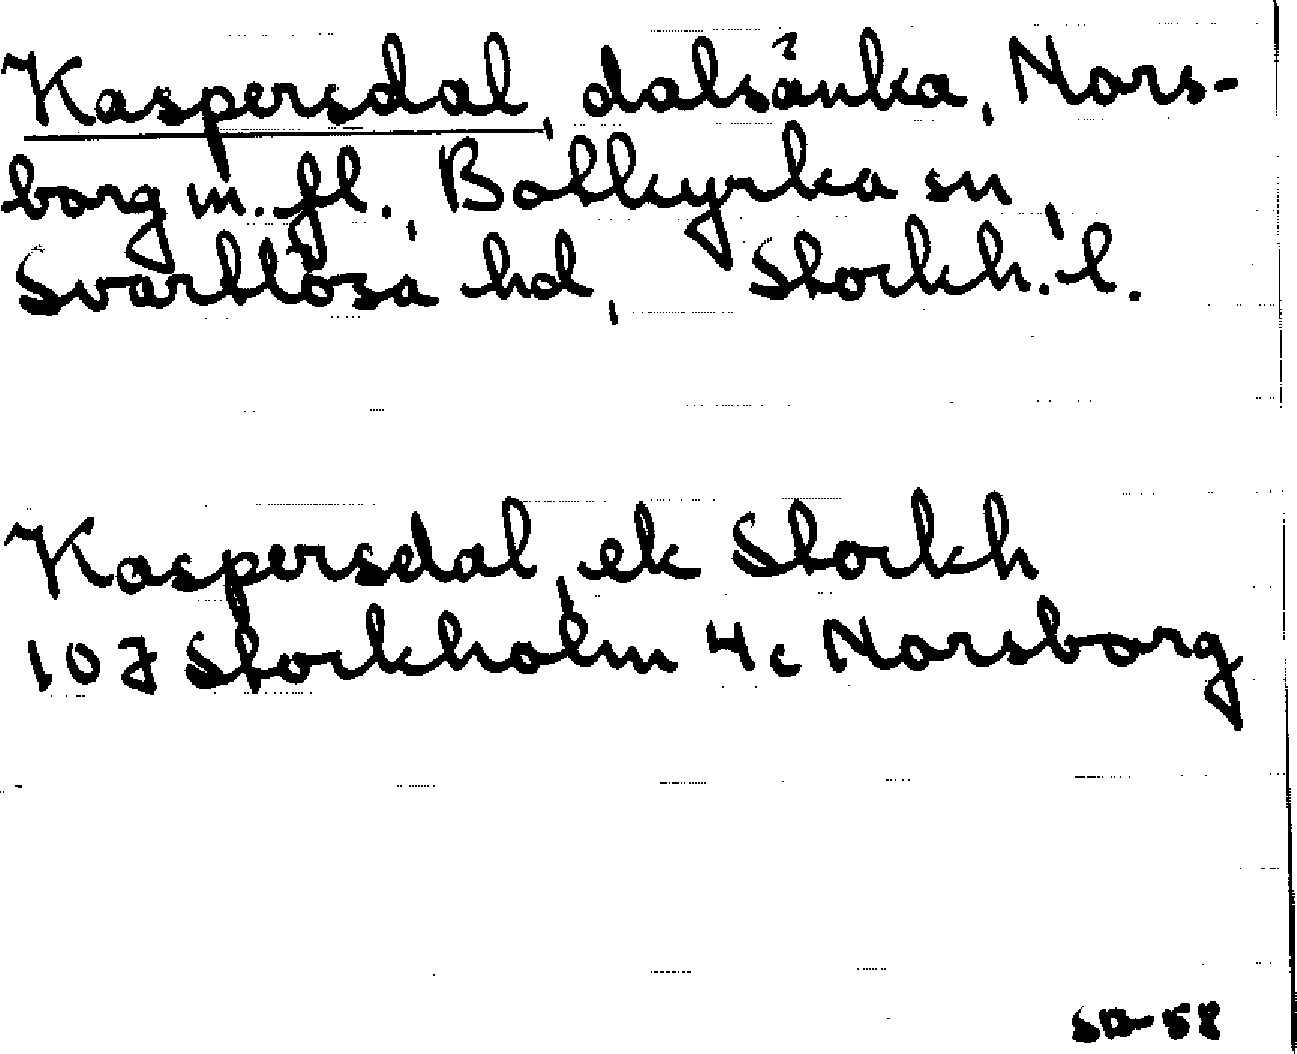 Kaspersdal, dalsänka, Nors-
borg m.fl., Botkyrka sn,
Svartlösa hd, Stockh. l.
Kaspersdal, ek Stockh
10J Stockholm 4c Norsborg